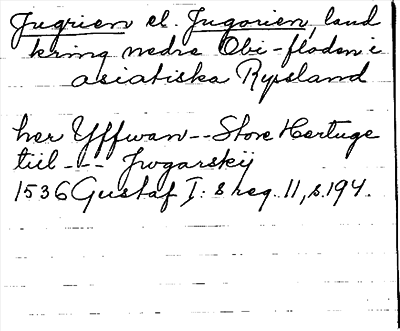 Jugrien el. Jugorien, land
kring nedre Obi-floden i
asiatiska Ryssland
her Yffwan -- Store Hertuge
tiil --- Jwgarskij
1536 Gustaf I:s reg. 11, s. 194.